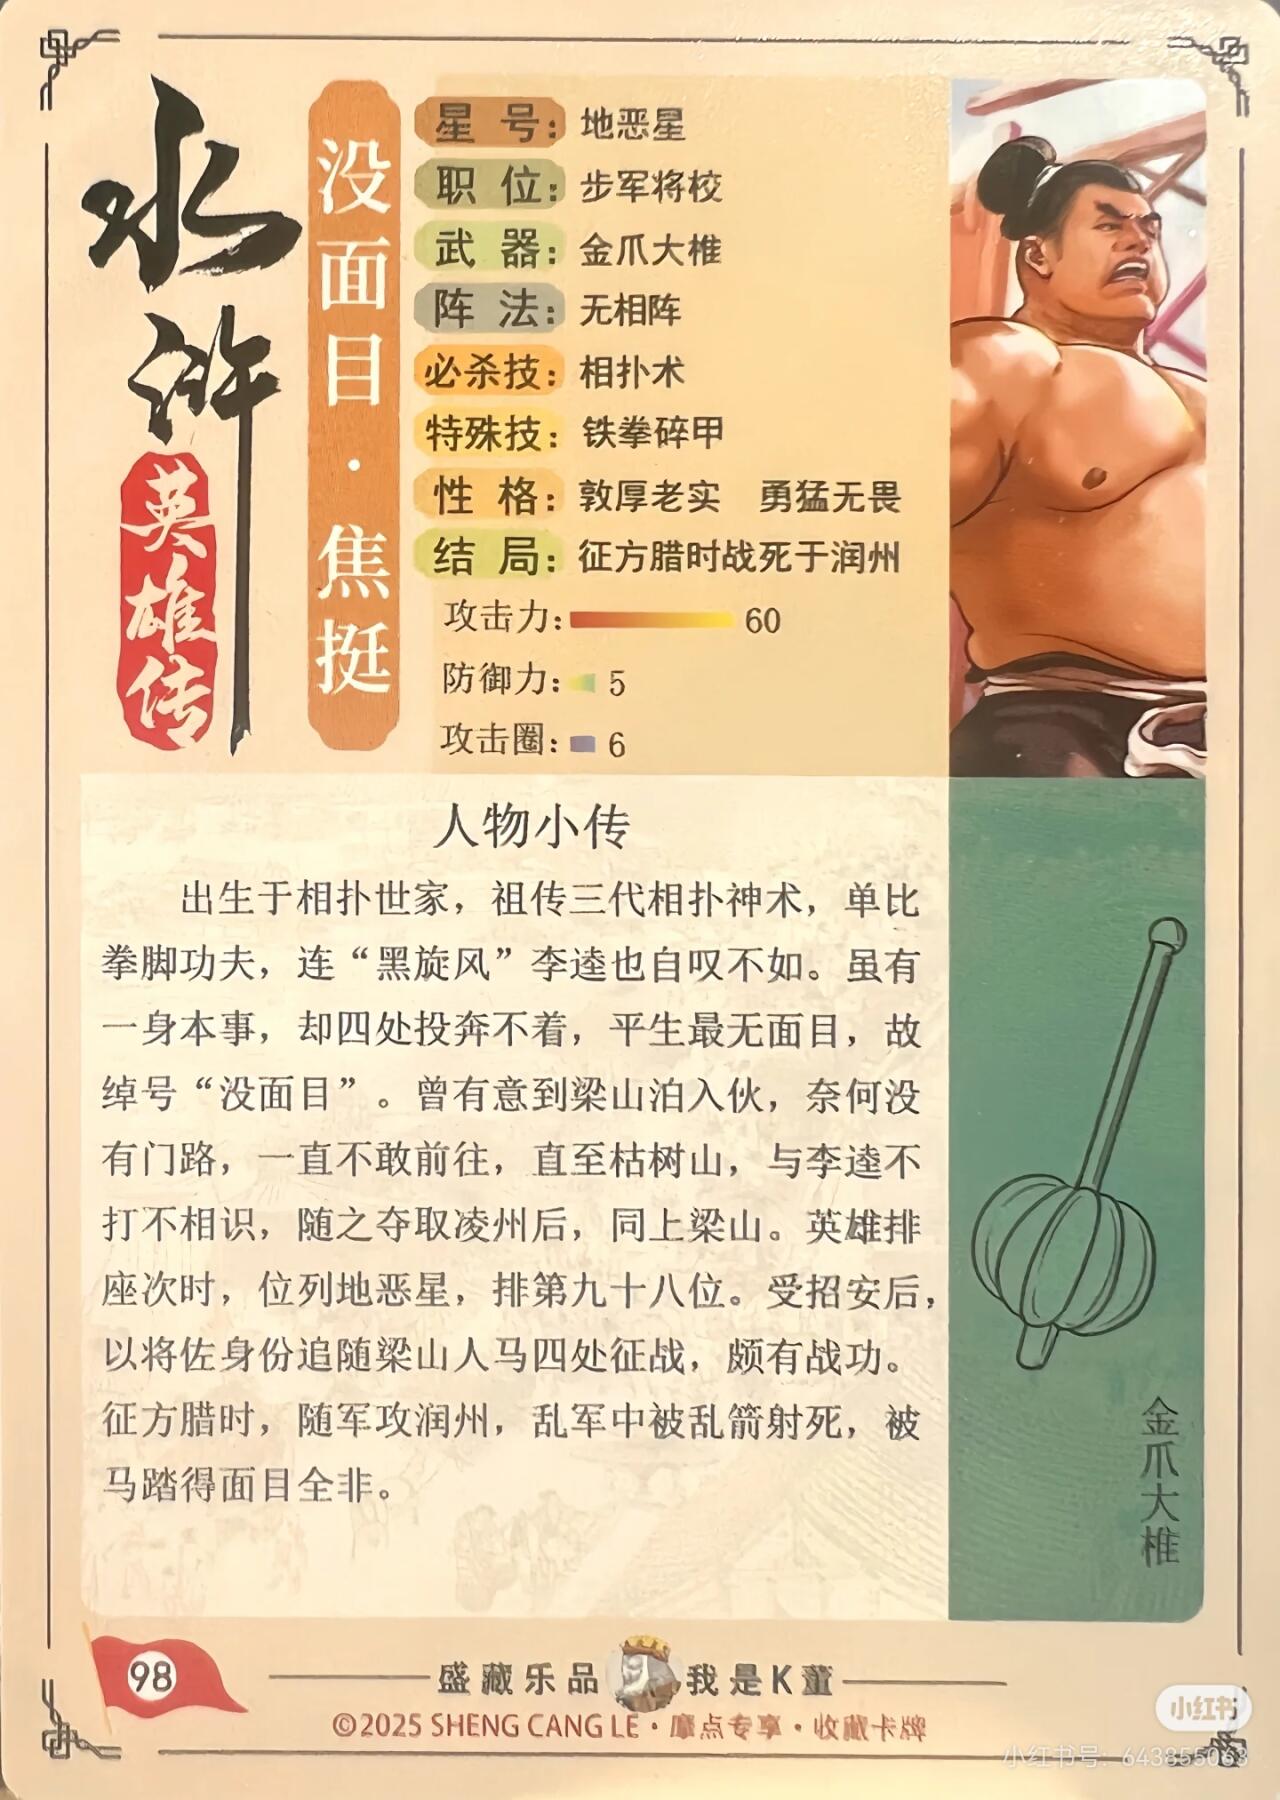 水浒
英雄传
没面目·焦挺
星号：地恶星
职位：步军将校
武器：金爪大椎
阵法：无相阵
必杀技：相扑术
特殊技：铁拳碎甲
性格：敦厚老实 勇猛无畏
结局：征方腊时战死于润州
攻击力：60
防御力：5
攻击圈：6
人物小传
出生于相扑世家，祖传三代相扑神术，单比
拳脚功夫，连“黑旋风”李逵也自叹不如。虽有
一身本事，却四处投奔不着，平生最无面目，故
绰号“没面目”。曾有意到梁山泊入伙，奈何没
有门路，一直不敢前往，直至枯树山，与李逵不
打不相识，随之夺取凌州后，同上梁山。英雄排
座次时，位列地恶星，排第九十八位。受招安后，
以将佐身份追随梁山人马四处征战，颇有战功。
征方腊时，随军攻润州，乱军中被乱箭射死，被
马踏得面目全非。
金爪大椎
98
盛藏乐品 我是K董
©2025 SHENG CANG LE·摩点专享·收藏卡牌
小红书
小红书号：643855063